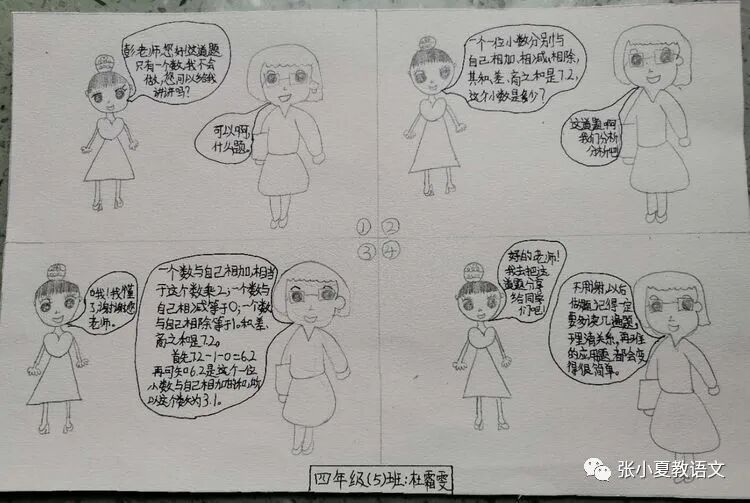 彭老师,您好!这道题
只有一个数,我不会
做,您可以给我
讲讲吗?
可以啊,
什么题。
一个一位小数分别与
自己相加、相减、相除,
其和、差、商之和是7.2,
这个小数是多少?
这道题啊
我们分析
分析吧
①②
③④
哦!我懂
了,谢谢您
老师。
一个数与自己相加,相当
于这个数乘2;一个数与
自己相减等于0;一个数
与自己相除等于1。和、差、
商之和是7.2。
首先7.2-1-0=6.2
再可知6.2是这个一位
小数与自己相加的和,所
以这个数为3.1。
好的老师!
我去把这
道题分享
给同学
们吧!
不用谢,以后
做题记得一定
要多读几遍题。
理清关系,再难
的应用题,都会变
得很简单。
四年级(5)班:杜霜雯
张小夏教语文